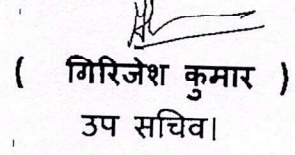 ( गिरिजेश कुमार )
उप सचिव।